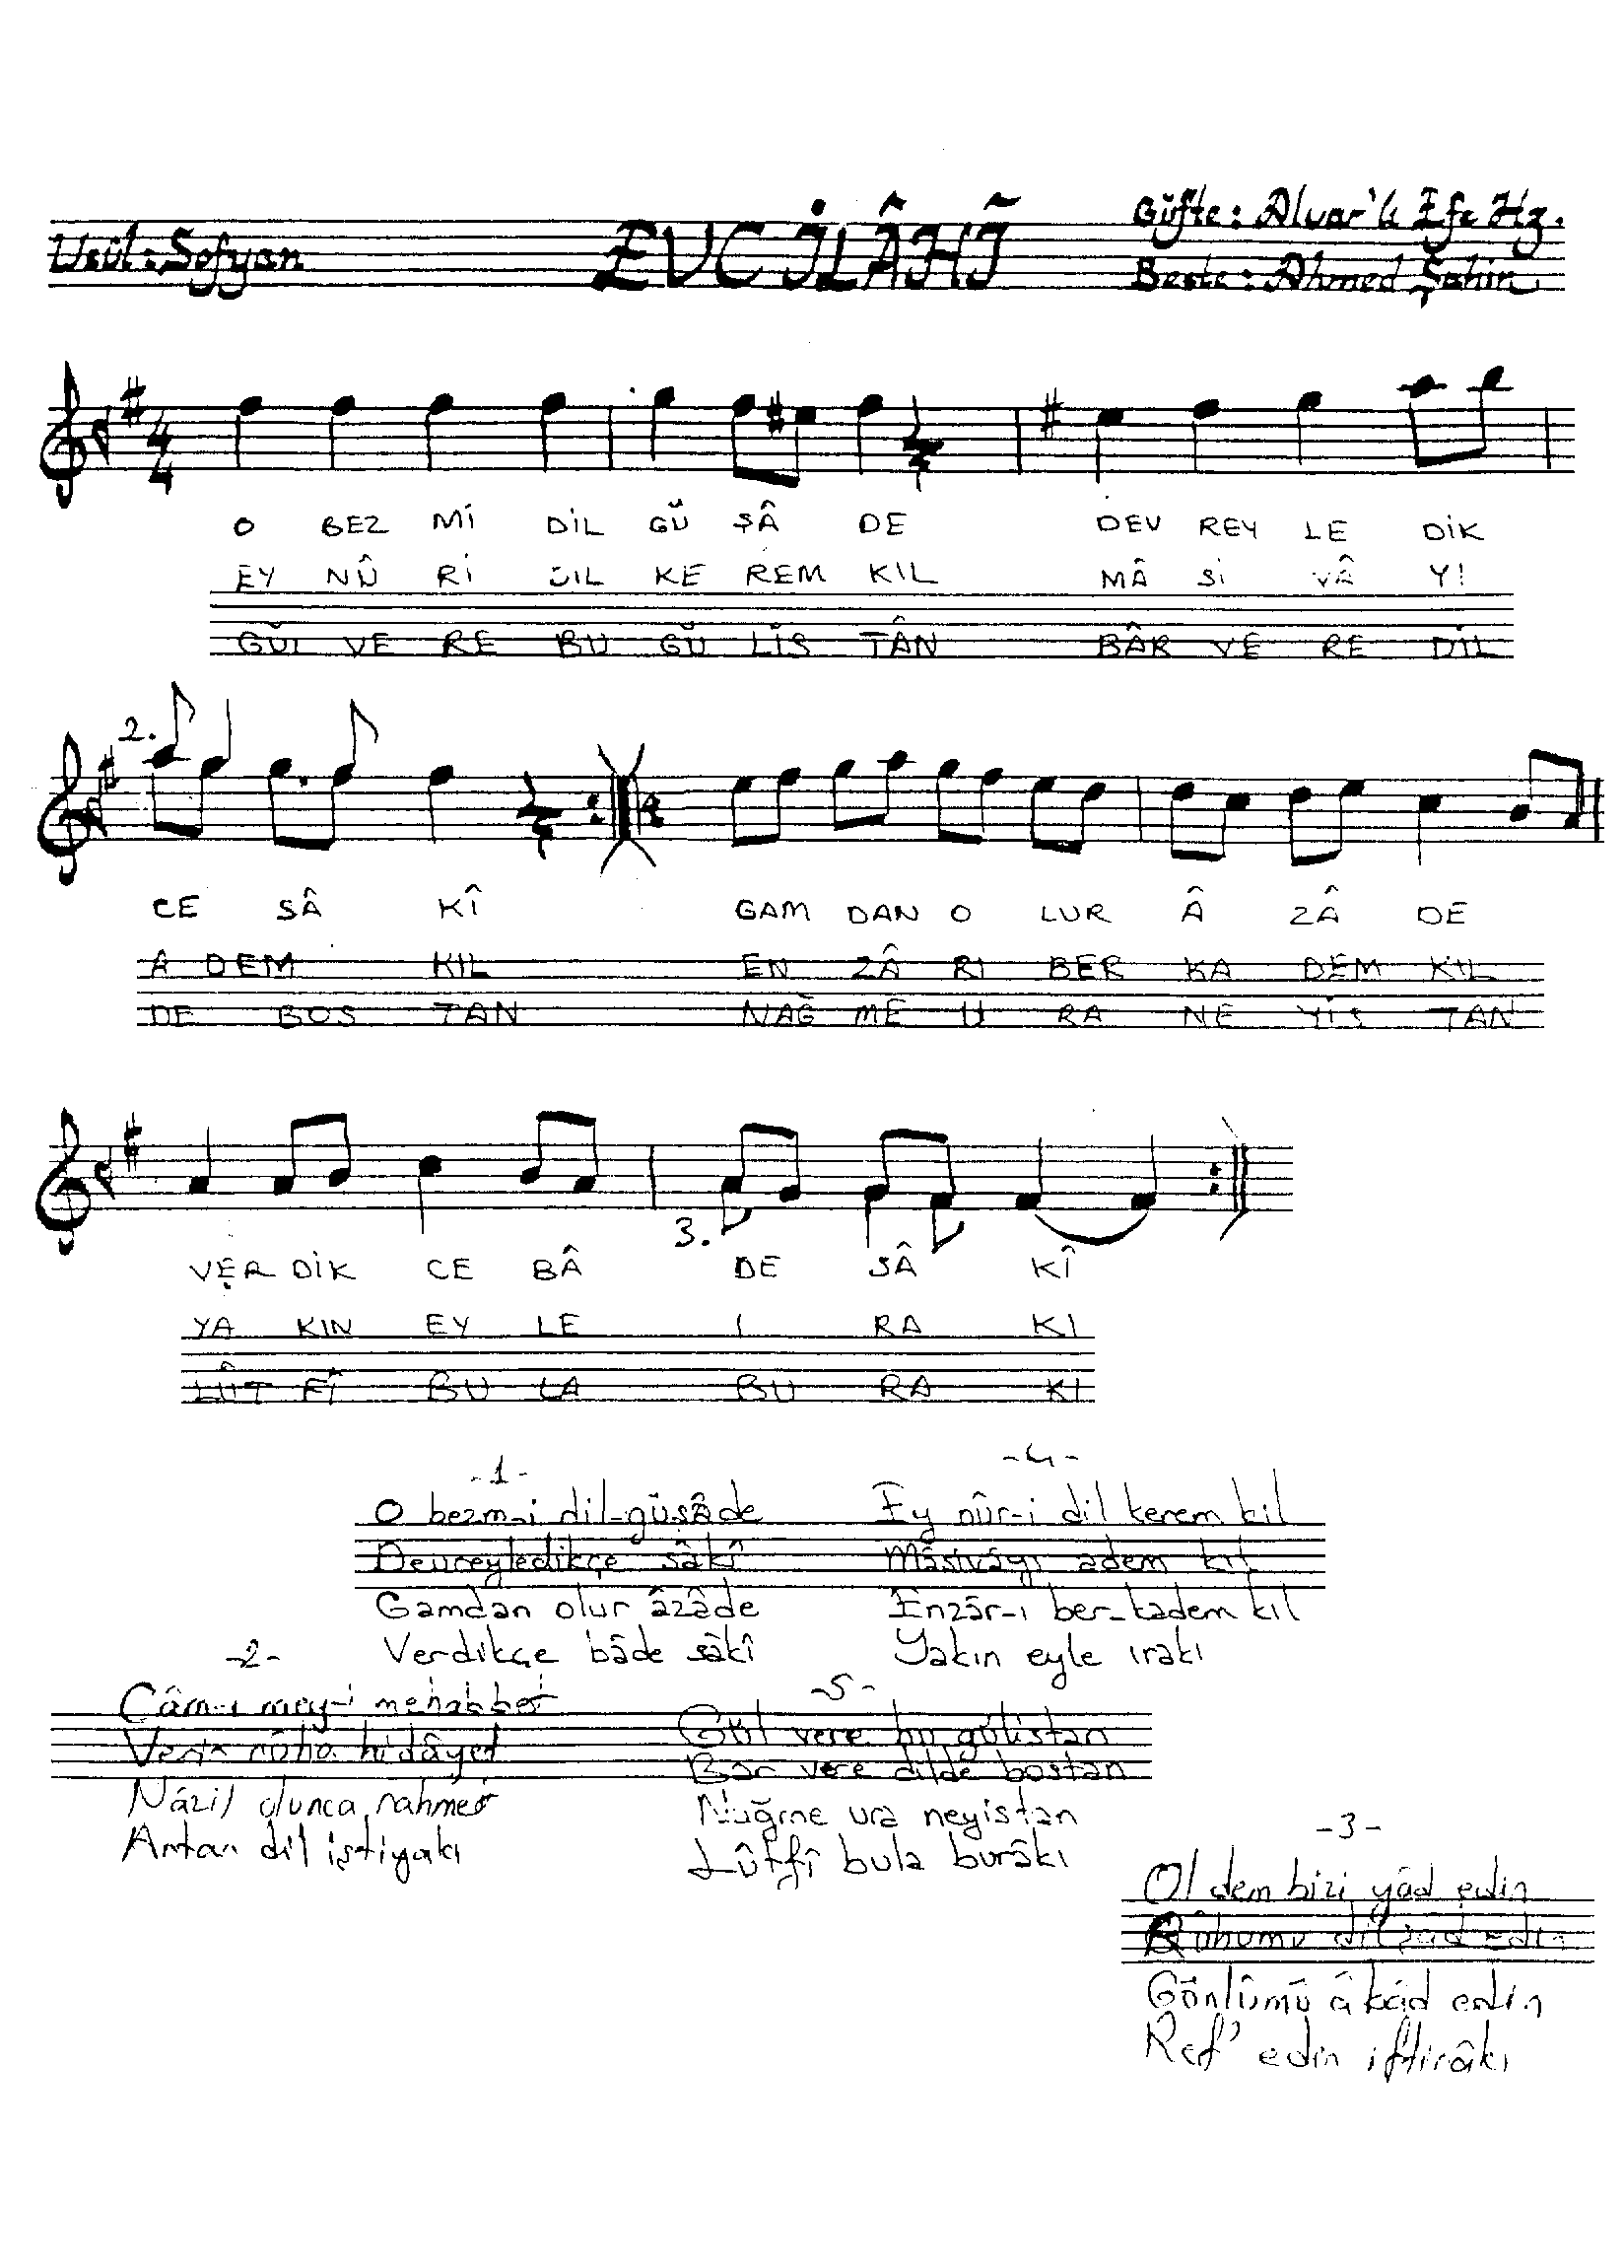 Usûl: Sofyan
EVC İLÂHÎ
Güfte: Alvar'lı Efe Hz.
Beste: Ahmed Şahin
4
4
O BEZ Mİ DİL GÜ ŞÂ DE DEV REY LE DİK
EY NÛ Rİ DİL KE REM KIL MÂ Sİ VÂ YI
GÜL VE RE BU GÜ LİS TÂN BÂR VE RE DİL
2.
CE SÂ KÎ GAM DAN O LUR Â ZÂ DE
A DEM KIL EN ZÂ RI BER KA DEM KIL
DE BOS TAN NAĞ ME U RA NE YİS TAN
3.
VER DİK CE BÂ DE SÂ KÎ
YA KIN EY LE I RA KI
LÛT FÎ BU LA BU RA KI
-1-
O bezm-i dil-güşâde
Devreyledikçe sâkî
Gamdan olur âzâde
Verdikçe bâde sâkî
-4-
Ey nûr-i dil kerem kıl
Mâsivâyı adem kıl
Enzâr-ı ber-kadem kıl
Yakın eyle ırakı
-2-
Câm-ı mey-i mehabbet
Verir rûha hidâyet
Nâzil olunca rahmet
Artar dil iştiyakı
-5-
Gül vere bu gülistan
Bar vere dilde bostan
Nağme ura neyistan
Lûtfî bula burâkı
-3-
Ol dem bizi yâd edin
Rûhumu dilşad edin
Gönlümü âbâd edin
Ref' edin iftirâkı